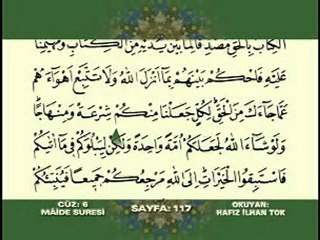 الْكِتَابَ بِالْحَقِّ مُصَدِّقًا لِمَا بَيْنَ يَدَيْهِ مِنَ الْكِتَابِ وَمُهَيْمِنًا
عَلَيْهِ فَاحْكُمْ بَيْنَهُمْ بِمَا اَنْزَلَ اللّٰهُ وَلَا تَتَّبِعْ اَهْوَاءَهُمْ
عَمَّا جَاءَكَ مِنَ الْحَقِّ لِكُلٍّ جَعَلْنَا مِنْكُمْ شِرْعَةً وَمِنْهَاجًا
وَلَوْ شَاءَ اللّٰهُ لَجَعَلَكُمْ اُمَّةً وَاحِدَةً وَلٰكِنْ لِيَبْلُوَكُمْ فِي مَا اٰتٰيكُمْ
فَاسْتَبِقُوا الْخَيْرَاتِ اِلَى اللّٰهِ مَرْجِعُكُمْ جَمِيعًا فَيُنَبِّئُكُمْ
CÜZ: 6 SAYFA: 117 OKUYAN:
MÂİDE SURESİ HAFIZ İLHAN TOK